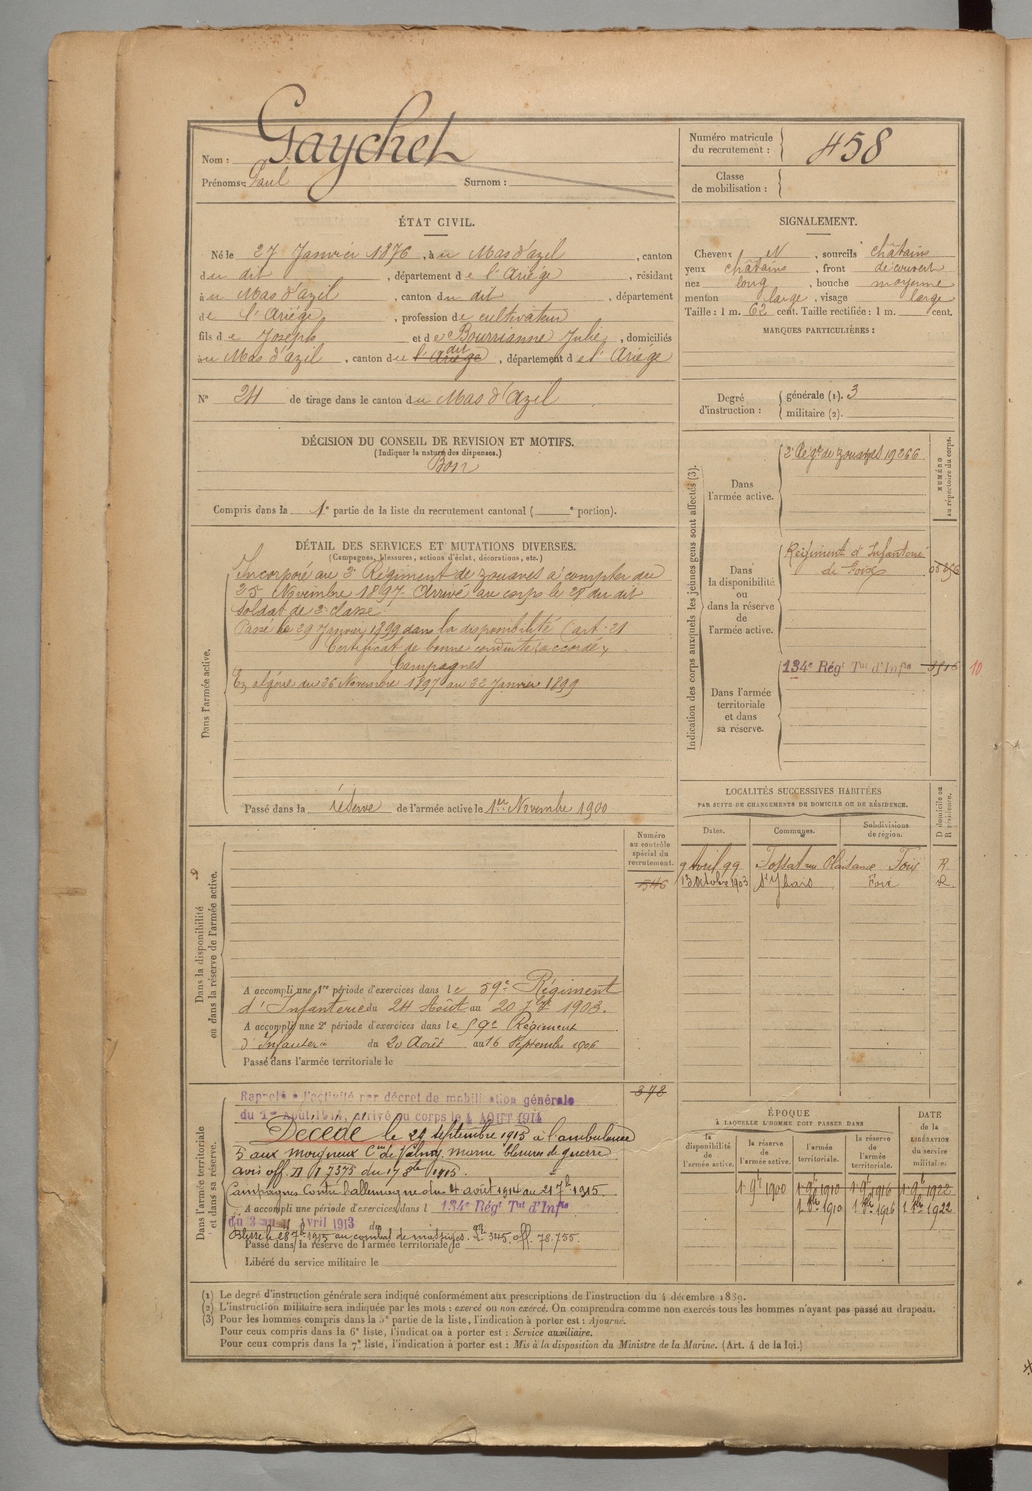 Nom : Gaychet
Prénoms : Paul Surnom :
Numéro matricule du recrutement : 458
Classe de mobilisation :
ÉTAT CIVIL.
Né le 27 Janvier 1876, à u Mas d'azil, canton
du dit, département de l'Ariège, résidant
à u Mas d'azil, canton du dit, département
de l'Ariège, profession de cultivateur
fils de Joseph et de Bourrianne Julie, domiciliés
à u Mas d'azil, canton du l'Ariège dit, département de l'Ariège
N° 24 de tirage dans le canton du Mas d'Azil
SIGNALEMENT.
Cheveux N, sourcils châtains
yeux châtains, front découvert
nez long, bouche moyenne
menton large, visage large
Taille : 1 m. 62 cent. Taille rectifiée : 1 m. cent.
MARQUES PARTICULIÈRES :
Degré d'instruction :
générale (1). 3
militaire (2).
DÉCISION DU CONSEIL DE REVISION ET MOTIFS.
(Indiquer la nature des dispenses.)
Bon
Compris dans la 1e partie de la liste du recrutement cantonal ( e portion).
DÉTAIL DES SERVICES ET MUTATIONS DIVERSES.
(Campagnes, blessures, actions d'éclat, décorations, etc.)
Dans l'armée active.
Incorporé au 2e Régiment de zouaves à compter du
25 Novembre 1897. Arrivé au corps le du dit
soldat de 2e classe
Passé le 29 Janvier 1899 dans la disponibilité (art. 21
Certificat de bonne conduite accordé
Campagnes
En algérie du 26 Novembre 1897 au Janvier 1899
Passé dans la réserve de l'armée active le 1er Novembre 1900
Indication des corps auxquels les jeunes gens sont affectés (3).
NUMÉRO au répertoire du corps.
Dans l'armée active.
2e Régt de zouaves 19266
Dans la disponibilité ou dans la réserve de l'armée active.
Régiment d'Infanterie
de Foix
Dans l'armée territoriale et dans sa réserve.
134e Régt Tal d'Infie 10
LOCALITÉS SUCCESSIVES HABITÉES
PAR SUITE DE CHANGEMENTS DE DOMICILE OU DE RÉSIDENCE.
Dates. Communes. Subdivisions de région. D domicile ou R résidence.
9 Avril 99 Foix R
13 octobre 1903 St Ybars Foix R
Dans la disponibilité ou dans la réserve de l'armée active.
Numéro au contrôle spécial du recrutement.
546
A accompli une 1re période d'exercices dans le 59e Régiment
d'Infanterie du 24 Août au 20 7bre 1903.
A accompli une 2e période d'exercices dans le 59e Régiment
d'Infanterie du 20 Août au 16 Septembre 1906
Passé dans l'armée territoriale le
378
Dans l'armée territoriale et dans sa réserve.
Rappelé à l'activité par décret de mobilisation générale
du 1er Août 1914, arrivé au corps le 4 AOUT 1914
Décédé le 29 septembre 1915 à l'ambulance
5 aux morgneux Cne de Valmy marne blessures de guerre
avis off. N 7375 du 17 8bre 1915.
Campagnes contre l'allemagne du 4 août 1914 au 7bre 1915.
A accompli une période d'exercices dans l 134e Régt Tal d'Infie
du 3 au Avril 1913 du
Blessé le 28 7bre 1915 au combat de massiges. off. 78.755.
Passé dans la réserve de l'armée territoriale le
Libéré du service militaire le
ÉPOQUE
À LAQUELLE L'HOMME DOIT PASSER DANS
la disponibilité de l'armée active. la réserve de l'armée active. l'armée territoriale. la réserve de l'armée territoriale.
DATE de la LIBÉRATION du service militaire.
1 9bre 1900 1 9bre 1910 1 9bre 1916 1 9bre 1922
1 8bre 1910 1 8bre 1916 1 8bre 1922
(1) Le degré d'instruction générale sera indiqué conformément aux prescriptions de l'instruction du 4 décembre 1889.
(2) L'instruction militaire sera indiquée par les mots : exercé ou non exercé. On comprendra comme non exercés tous les hommes n'ayant pas passé au drapeau.
(3) Pour les hommes compris dans la 5e partie de la liste, l'indication à porter est : Ajourné.
Pour ceux compris dans la 6e liste, l'indication à porter est : Service auxiliaire.
Pour ceux compris dans la 7e liste, l'indication à porter est : Mis à la disposition du Ministre de la Marine. (Art. 4 de la loi.)